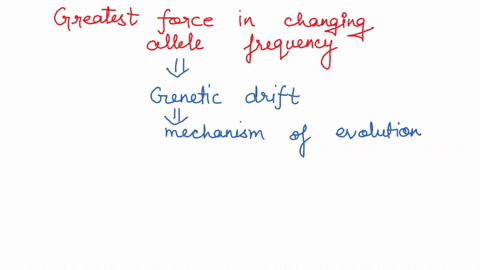 Greatest force in changing
allele frequency
⇓
Genetic drift
⇓
mechanism of evolution